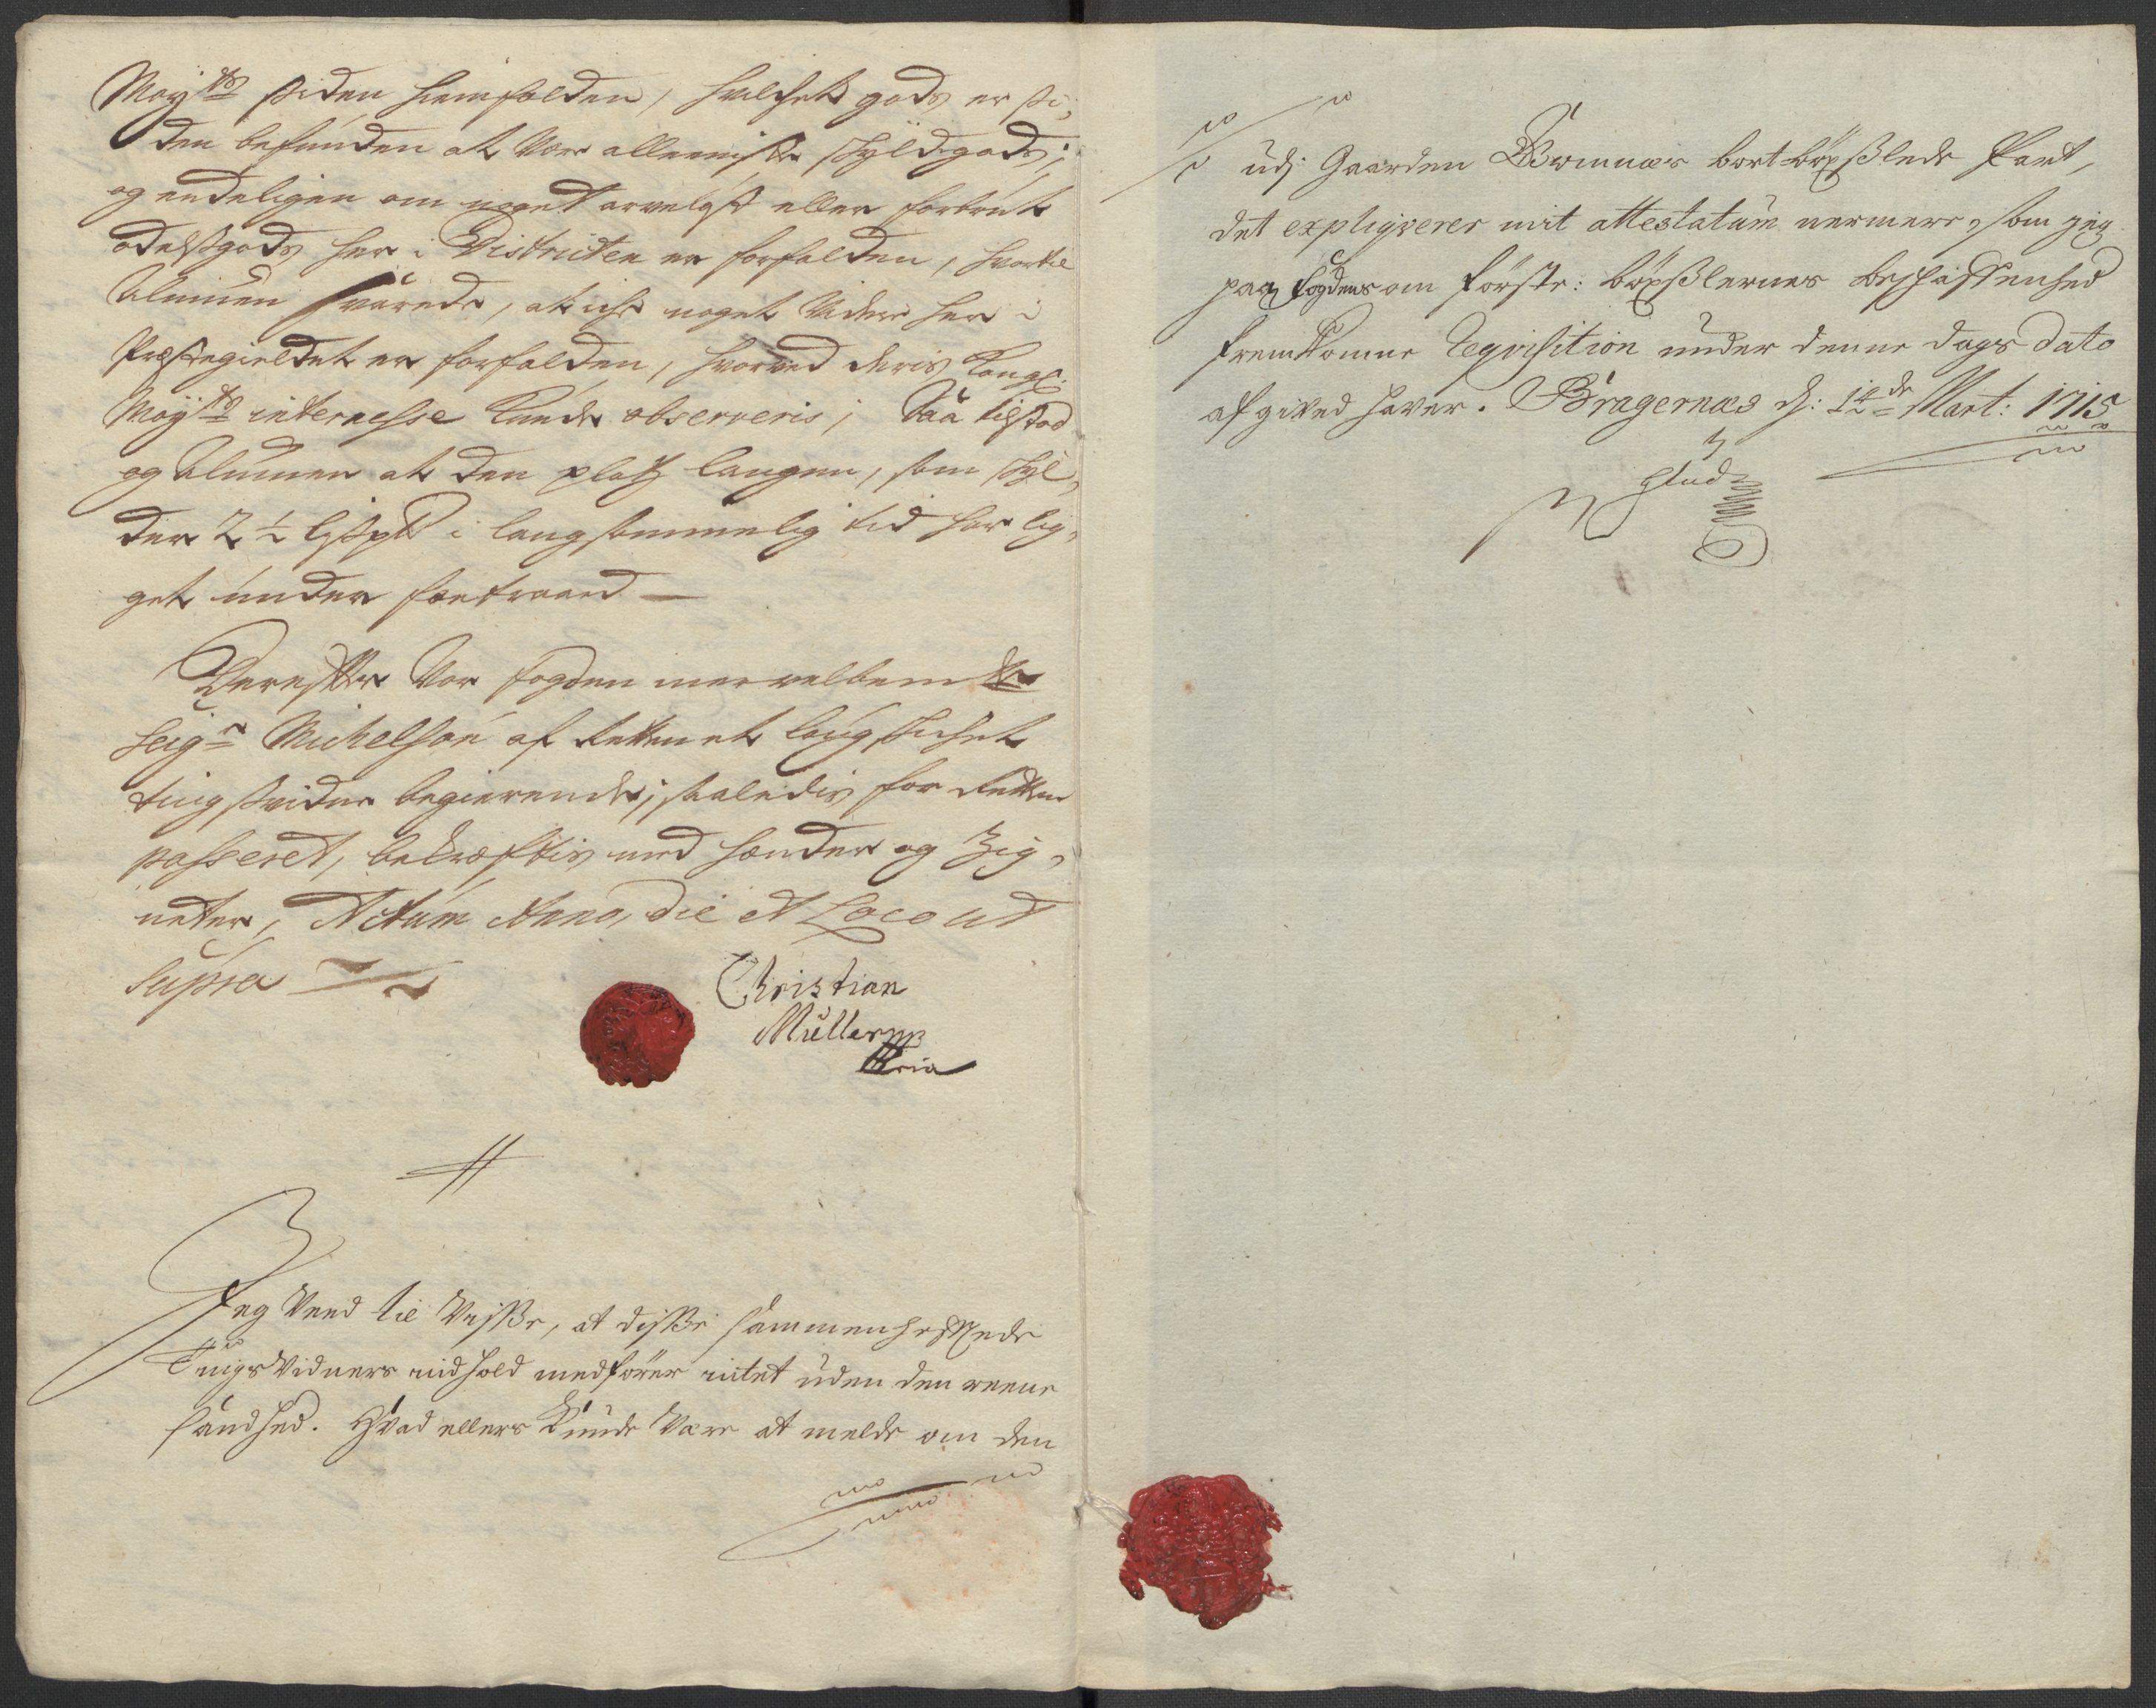 Mayts siden hiemfalden, hvilchet gods er si,
den befunden at være alleeniste schyldgods;
og endeligen om noget arveløst eller forbrut
odelsgods her i Districtet er forfalden, hvortil
Almuen svarede, at iche noget videre her i
Præstegieldet er forfalden, hvorved deris Kongl:
Mayts interesse kunde observeris; Saa tilstod
og Almuen at den plads Laugen, som schyl,
der 2 ½ Lispd i langsommelig tid har lig,
get under
Derefter var fogden velbemte
Seigr Michelson af Retten et laugschichet
tingsvidne begierende; saaledis for Retten
passeret, bekræftis med hænder og Zig,
neter, Actum Anno, die et Loco ut
supra
Christian
Müller mp
pria
Jeg veed til visse, at disse sammenheftede
TingsVidners indhold medfører intet uden den reene
sandhed. Hvad ellers kunde være at melde om den
udj Gaarden bortbøxslede Part,
det expliqverer mit attestatum nermere, som jeg
paa fogdens om første: bøxslernes beschaffenhed
fremkomne Reqvisition under denne dags dato
afgived haver. Bragernæs d: 12de Mart: 1715